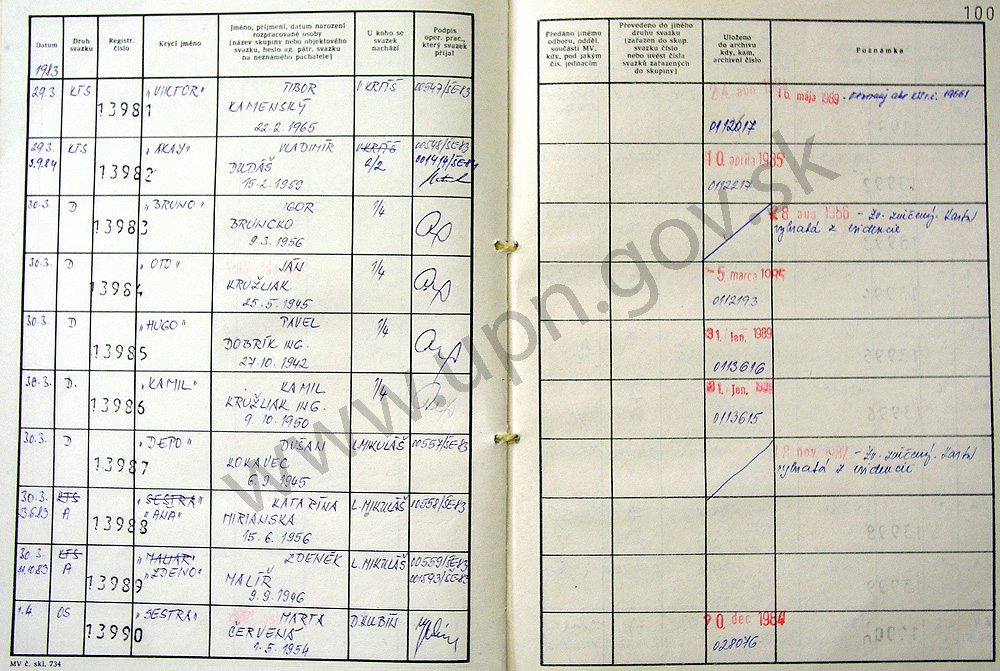 100
Datum
Druh svazku
Registr. číslo
Krycí jméno
Jméno, příjmení, datum narození
rozpracované osoby
(název skupiny nebo objektového
svazku, heslo az. pátr. svazku
na neznámého pachatele)
U koho se
svazek
nachází
Podpis
oper. prac.,
který svazek
přijal
Předáno jinému
odboru, odděl.
součásti MV,
kdy, pod jakým
čís. jednacím
Převedeno do jiného
druhu svazku
(zařazen do skup.
svazku číslo
nebo uvést čísla
svazků zařazených
do skupiny)
Uloženo
do archivu
kdy, kam,
archivní číslo
Poznámka
1983
29.3 KTS 13981 "VIKTOR" TIBOR 00547/ŠE-83
KAMENSKÝ
22.2.1965
24. aug 16. mája 1989
0112017
29.3 KTS 13982 "AKAY" VLADIMÍR 00548/ŠE-83
3.9.84 DUDÁŠ 2/2
15.2.1959
10. apríla 1985
0112217
30.3. D 13983 "BRUNO" IGOR 1/4
BRUNCKO
9.3.1956
28. aug 1986 - Zv. zničený. Karta
vybratá z evidencie
30.3. D 13984 "OTO" JÁN 1/4
KRUŽLIAK
25.5.1945
-5. marca
0112193
30.3. D 13985 "HUGO" PAVEL 1/4
DOBRÍK ING.
27.10.1942
31. jan. 1989
0113616
30.3. D. 13986 "KAMIL" KAMIL 1/4
KRUŽLIAK ING.
9.10.1950
31. jan. 1989
0113615
30.3. D 13987 "DEPO" DUŠAN L.MIKULÁŠ 00557/ŠE-83
6.9.1945
nov. 1987 - Zv. zničený. Karta
vybratá z evidencie
30.3. KTS 13988 "SESTRA" KATARÍNA L.MIKULÁŠ 00558/ŠE-83
13.6.83 A "ANA" MIRIANSKA
15.6.1956
30.3. KTS 13989 "MALIAR" ZDENĚK L.MIKULÁŠ 00559/ŠE-83
11.10.83 A "ZDENO" MALÍŘ 001593/ŠE-83
9.9.1946
1.4 OS 13990 "SESTRA" MARTA D.KUBÍN
ČERVENÁ
1.5.1954
20. dec. 1984
028076
MV č. skl. 734
www.upn.gov.sk